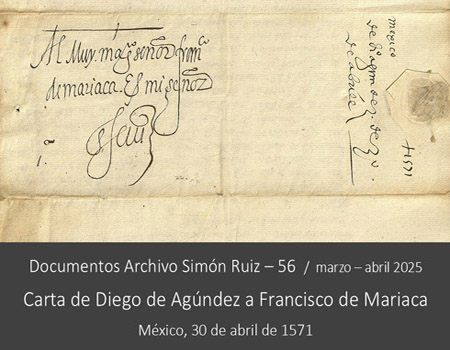 Al Muy. mag.co señor fran.co
de mariaca. Es mi señor
mexico
de di.o agundez. de 30.
de abrill
+ 1571
Documentos Archivo Simón Ruiz – 56 / marzo – abril 2025
Carta de Diego de Agúndez a Francisco de Mariaca
México, 30 de abril de 1571